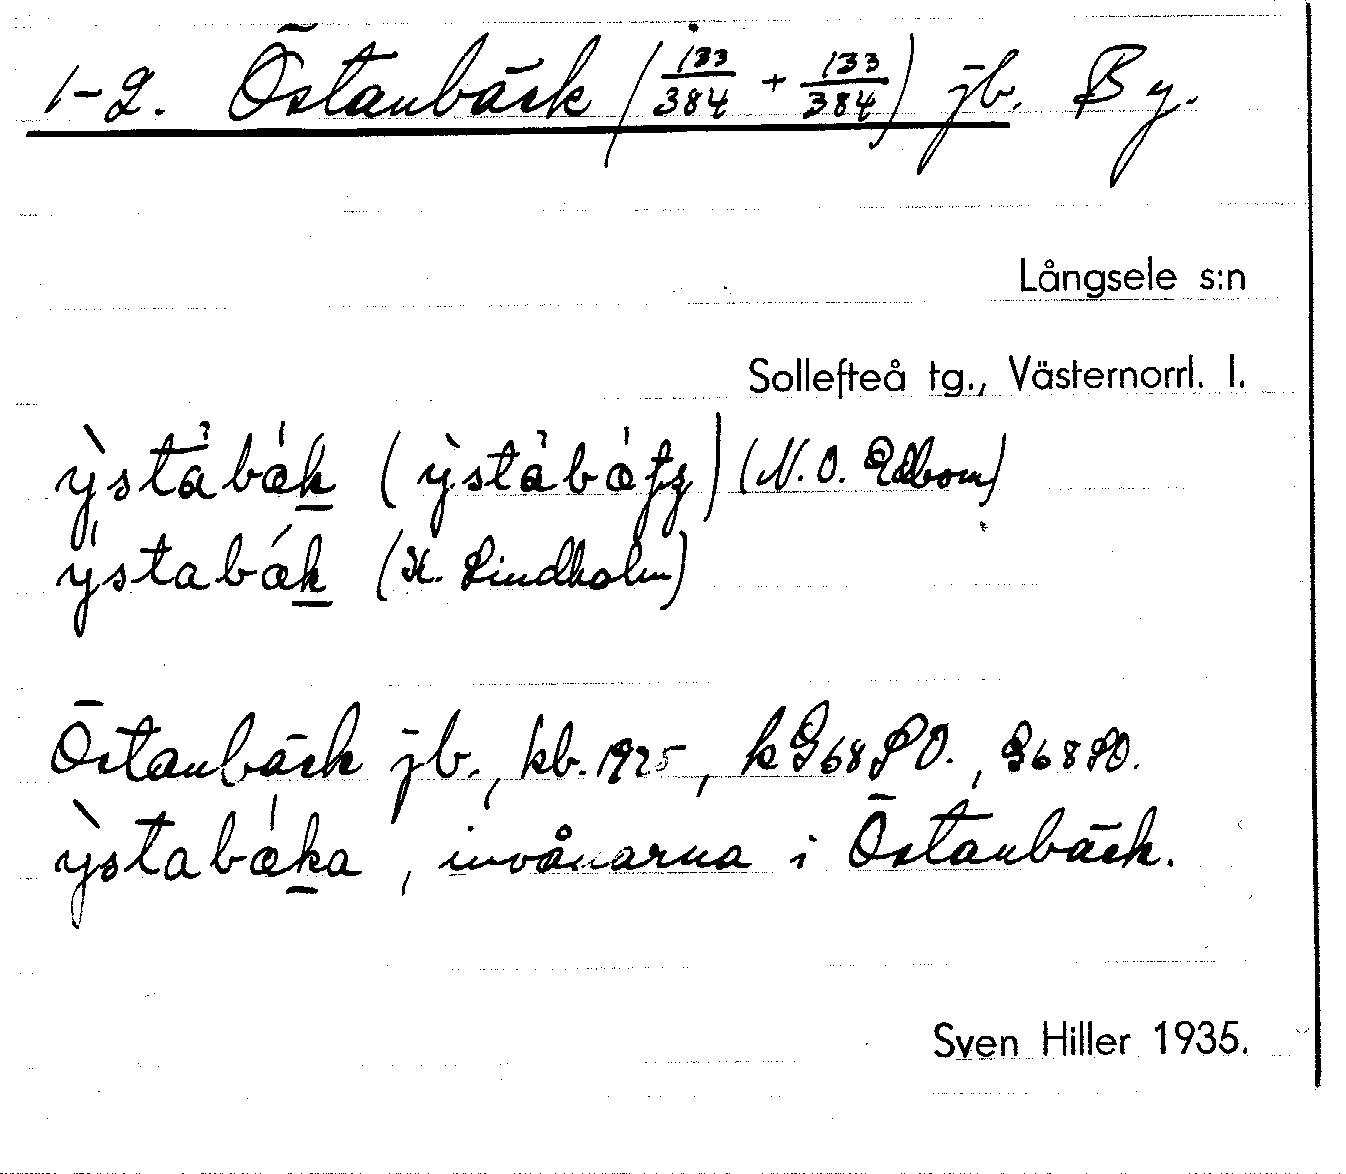 1-2. Östanbäck (133/384 + 133/384) jb. By.
Långsele s:n
Sollefteå tg., Västernorrl. l.
ỳstabák (ỳstabá) (N. O. Edbom)
ýstabák (K. Lindholm)
Östanbäck jb., kb. 1925, kG68SO., G68SO.
ỳstabáka, invånarna i Östanbäck.
Sven Hiller 1935.